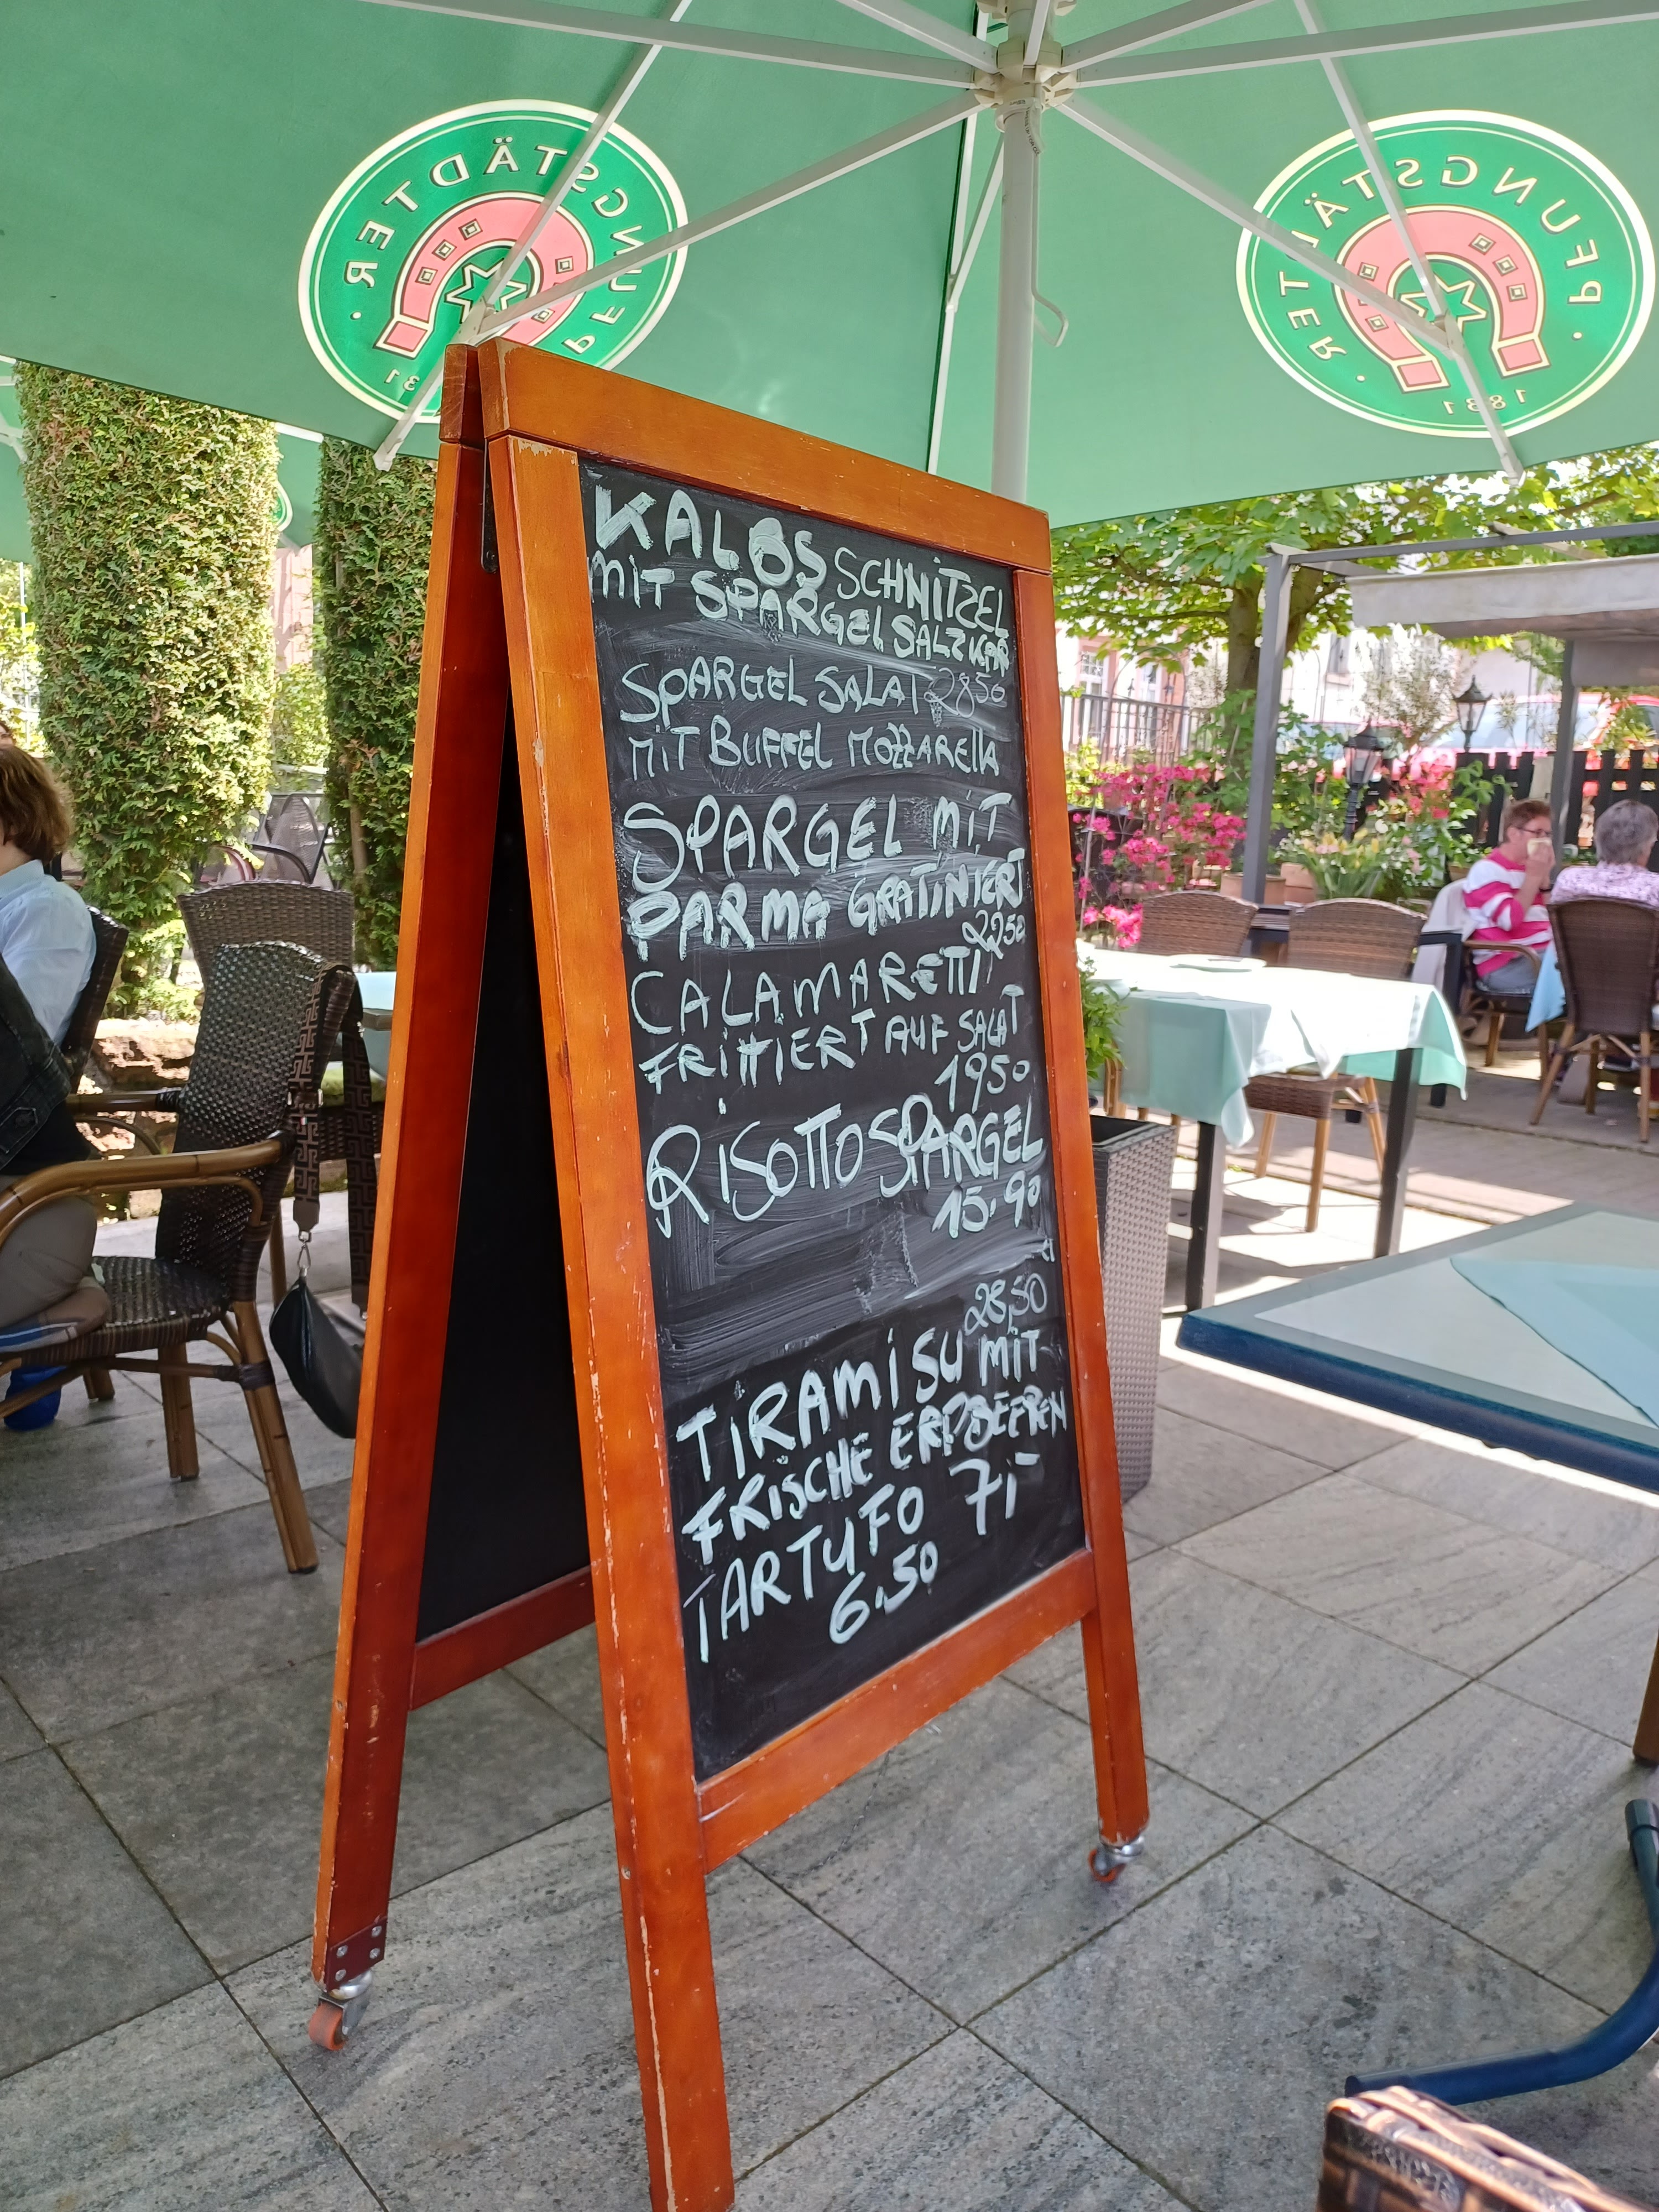 PFUNGSTÄDTER
PFUNGSTÄDTER
1831
KALBSSCHNITZEL
MIT SPARGEL SALZKAR
SPARGEL SALAT 2850
MIT BUFFEL MOZZARELLA
SPARGEL MIT
PARMA GRATINIERT
2250
CALAMARETTI
FRITTIERT AUF SALAT
1950
RISOTTO SPARGEL
15.90
28,50
TIRAMISU MIT
FRISCHE ERDBEEREN
TARTUFO 7,-
6.50